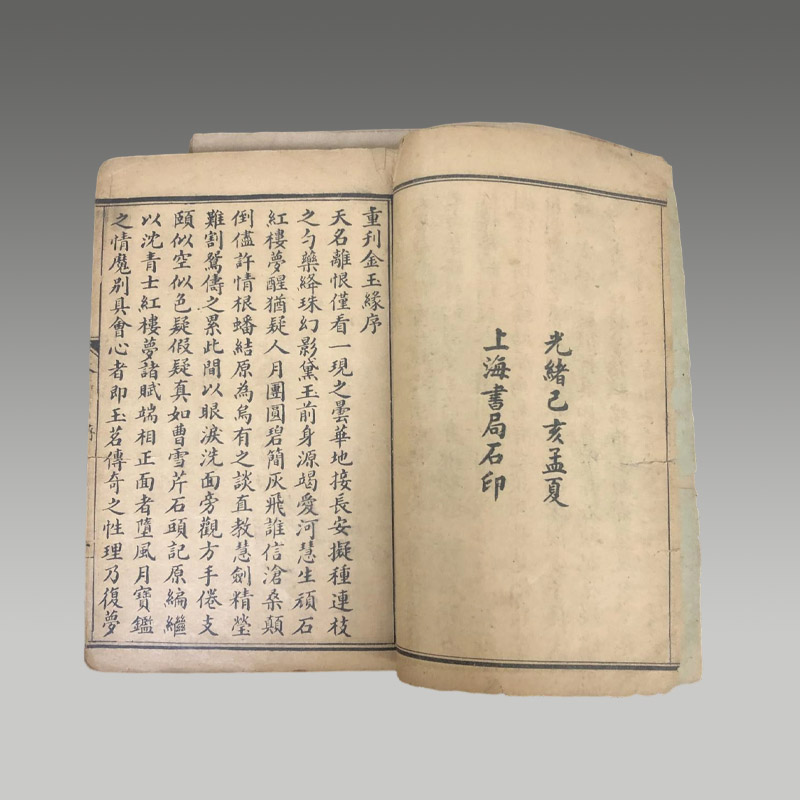 光緒己亥孟夏
上海書局石印
重刊金玉緣序
天名離恨僅看一現之曇華地接長安擬種連枝
之勺藥絳珠幻影黛玉前身源竭愛河慧生頑石
紅樓夢醒猶疑人月團圓碧簡灰飛誰信滄桑顛
倒儘許情根蟠結原為烏有之談直教慧劍精瑩
難割鴛儔之累此間以眼淚洗面旁觀方手倦支
頤似空似色疑假疑真如曹雪芹石頭記原編繼
以沈青士紅樓夢諸賦端相正面者墮風月寶鑑
之情魔別具會心者即玉茗傳奇之性理乃復夢
序